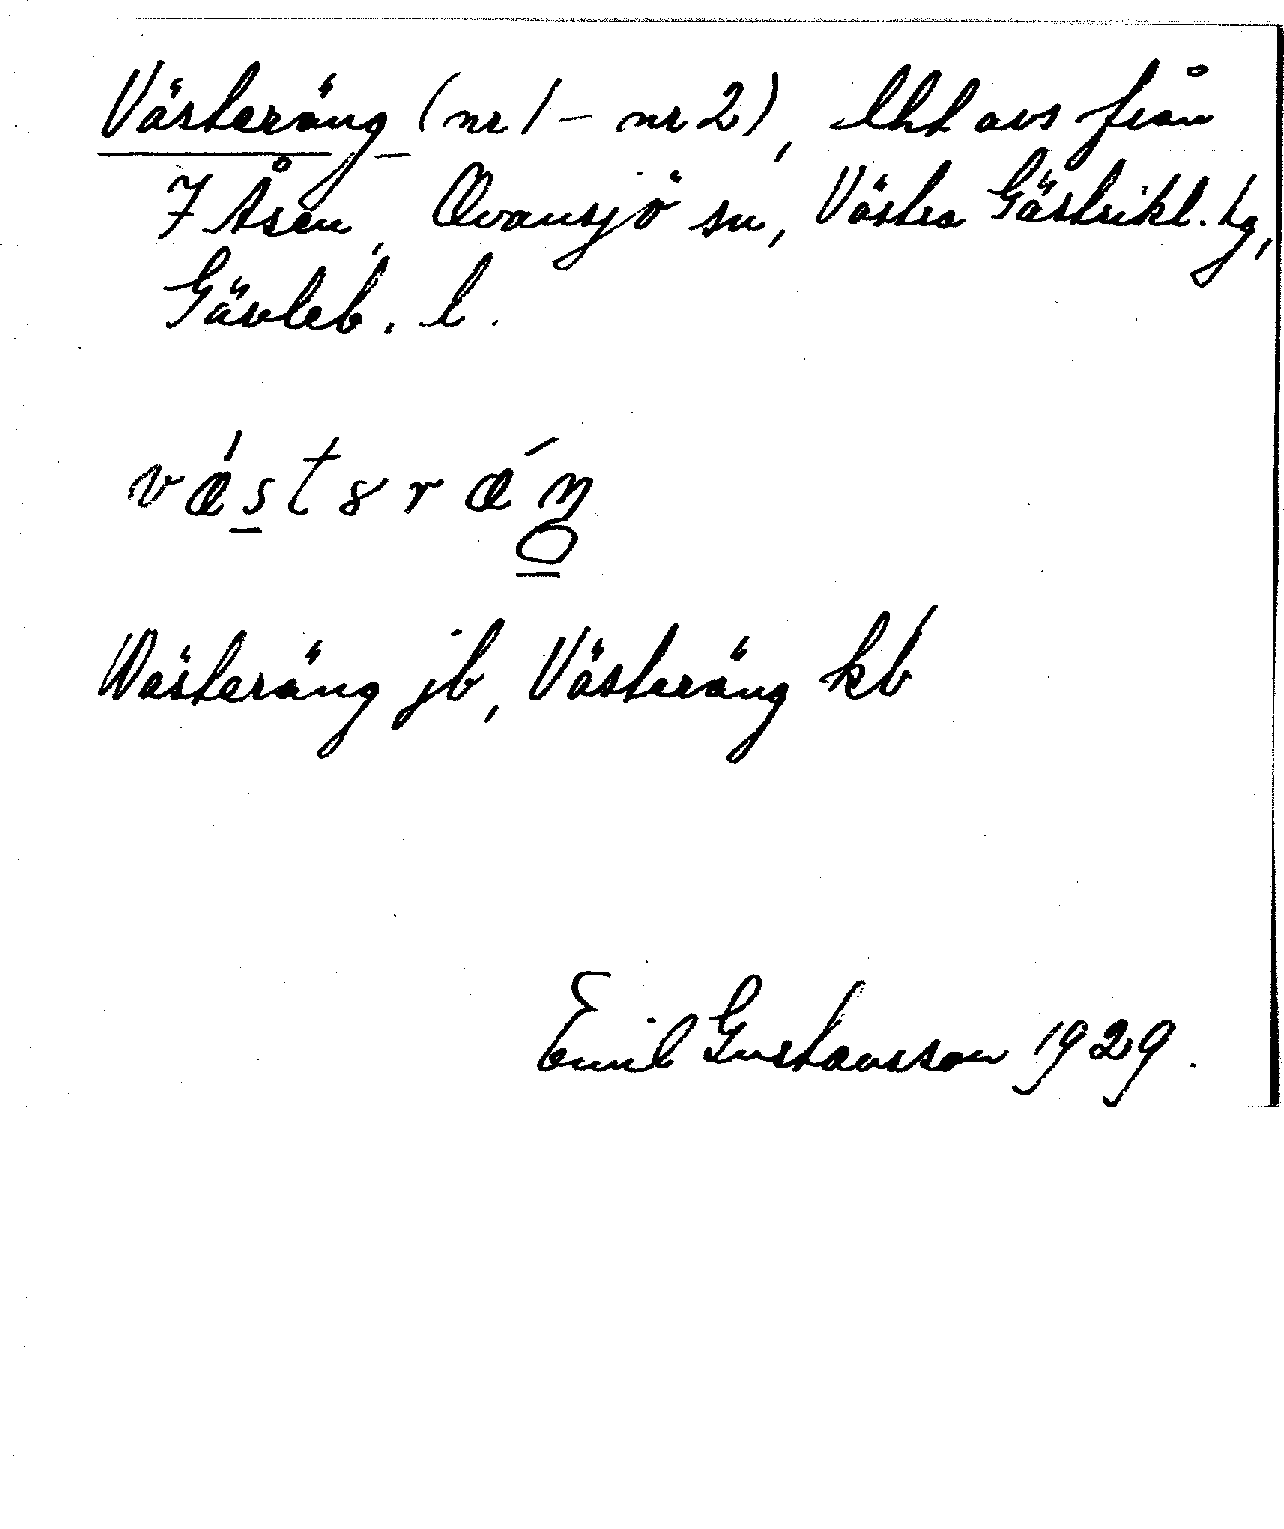 Västeräng (nr 1 – nr 2), lht avs från
7 Åsen, Ovansjö sn, Västra Gästrikl. hg,
Gävleb. l.
væ̀stərǽŋ
Wästeräng jb, Västeräng kb
Emil Gustavsson 1929.